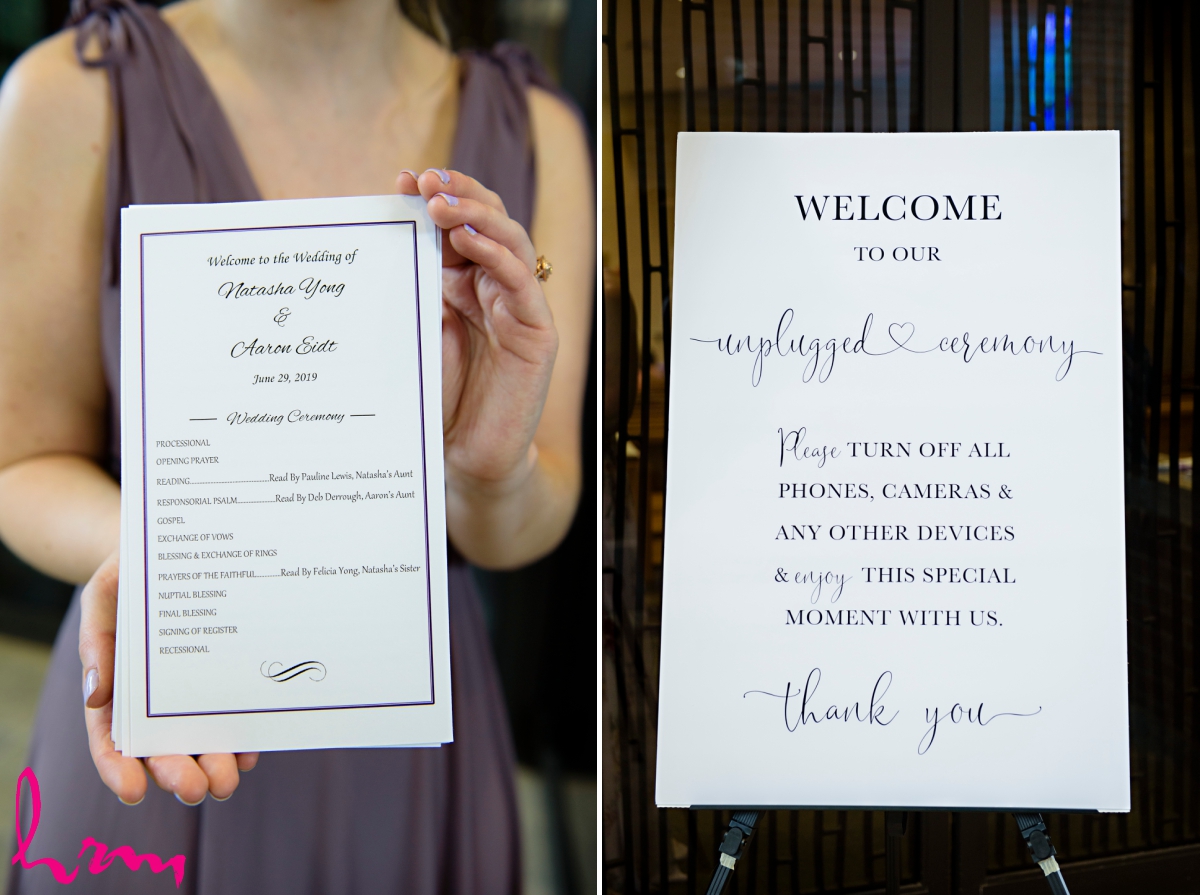 Welcome to the Wedding of
Natasha Yong
&
Aaron Eidt
June 29, 2019
Wedding Ceremony
PROCESSIONAL
OPENING PRAYER
READING..............................Read By Pauline Lewis, Natasha's Aunt
RESPONSORIAL PSALM..............Read By Deb Derrough, Aaron's Aunt
GOSPEL
EXCHANGE OF VOWS
BLESSING & EXCHANGE OF RINGS
PRAYERS OF THE FAITHFUL.........Read By Felicia Yong, Natasha's Sister
NUPTIAL BLESSING
FINAL BLESSING
SIGNING OF REGISTER
RECESSIONAL
hrm
WELCOME
TO OUR
unplugged ceremony
Please TURN OFF ALL
PHONES, CAMERAS &
ANY OTHER DEVICES
& enjoy THIS SPECIAL
MOMENT WITH US.
thank you